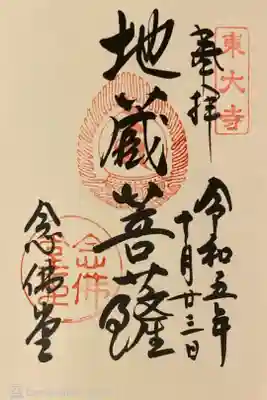 東大寺
奉拝
令和五年
十月廿三日
地蔵菩薩
念佛堂